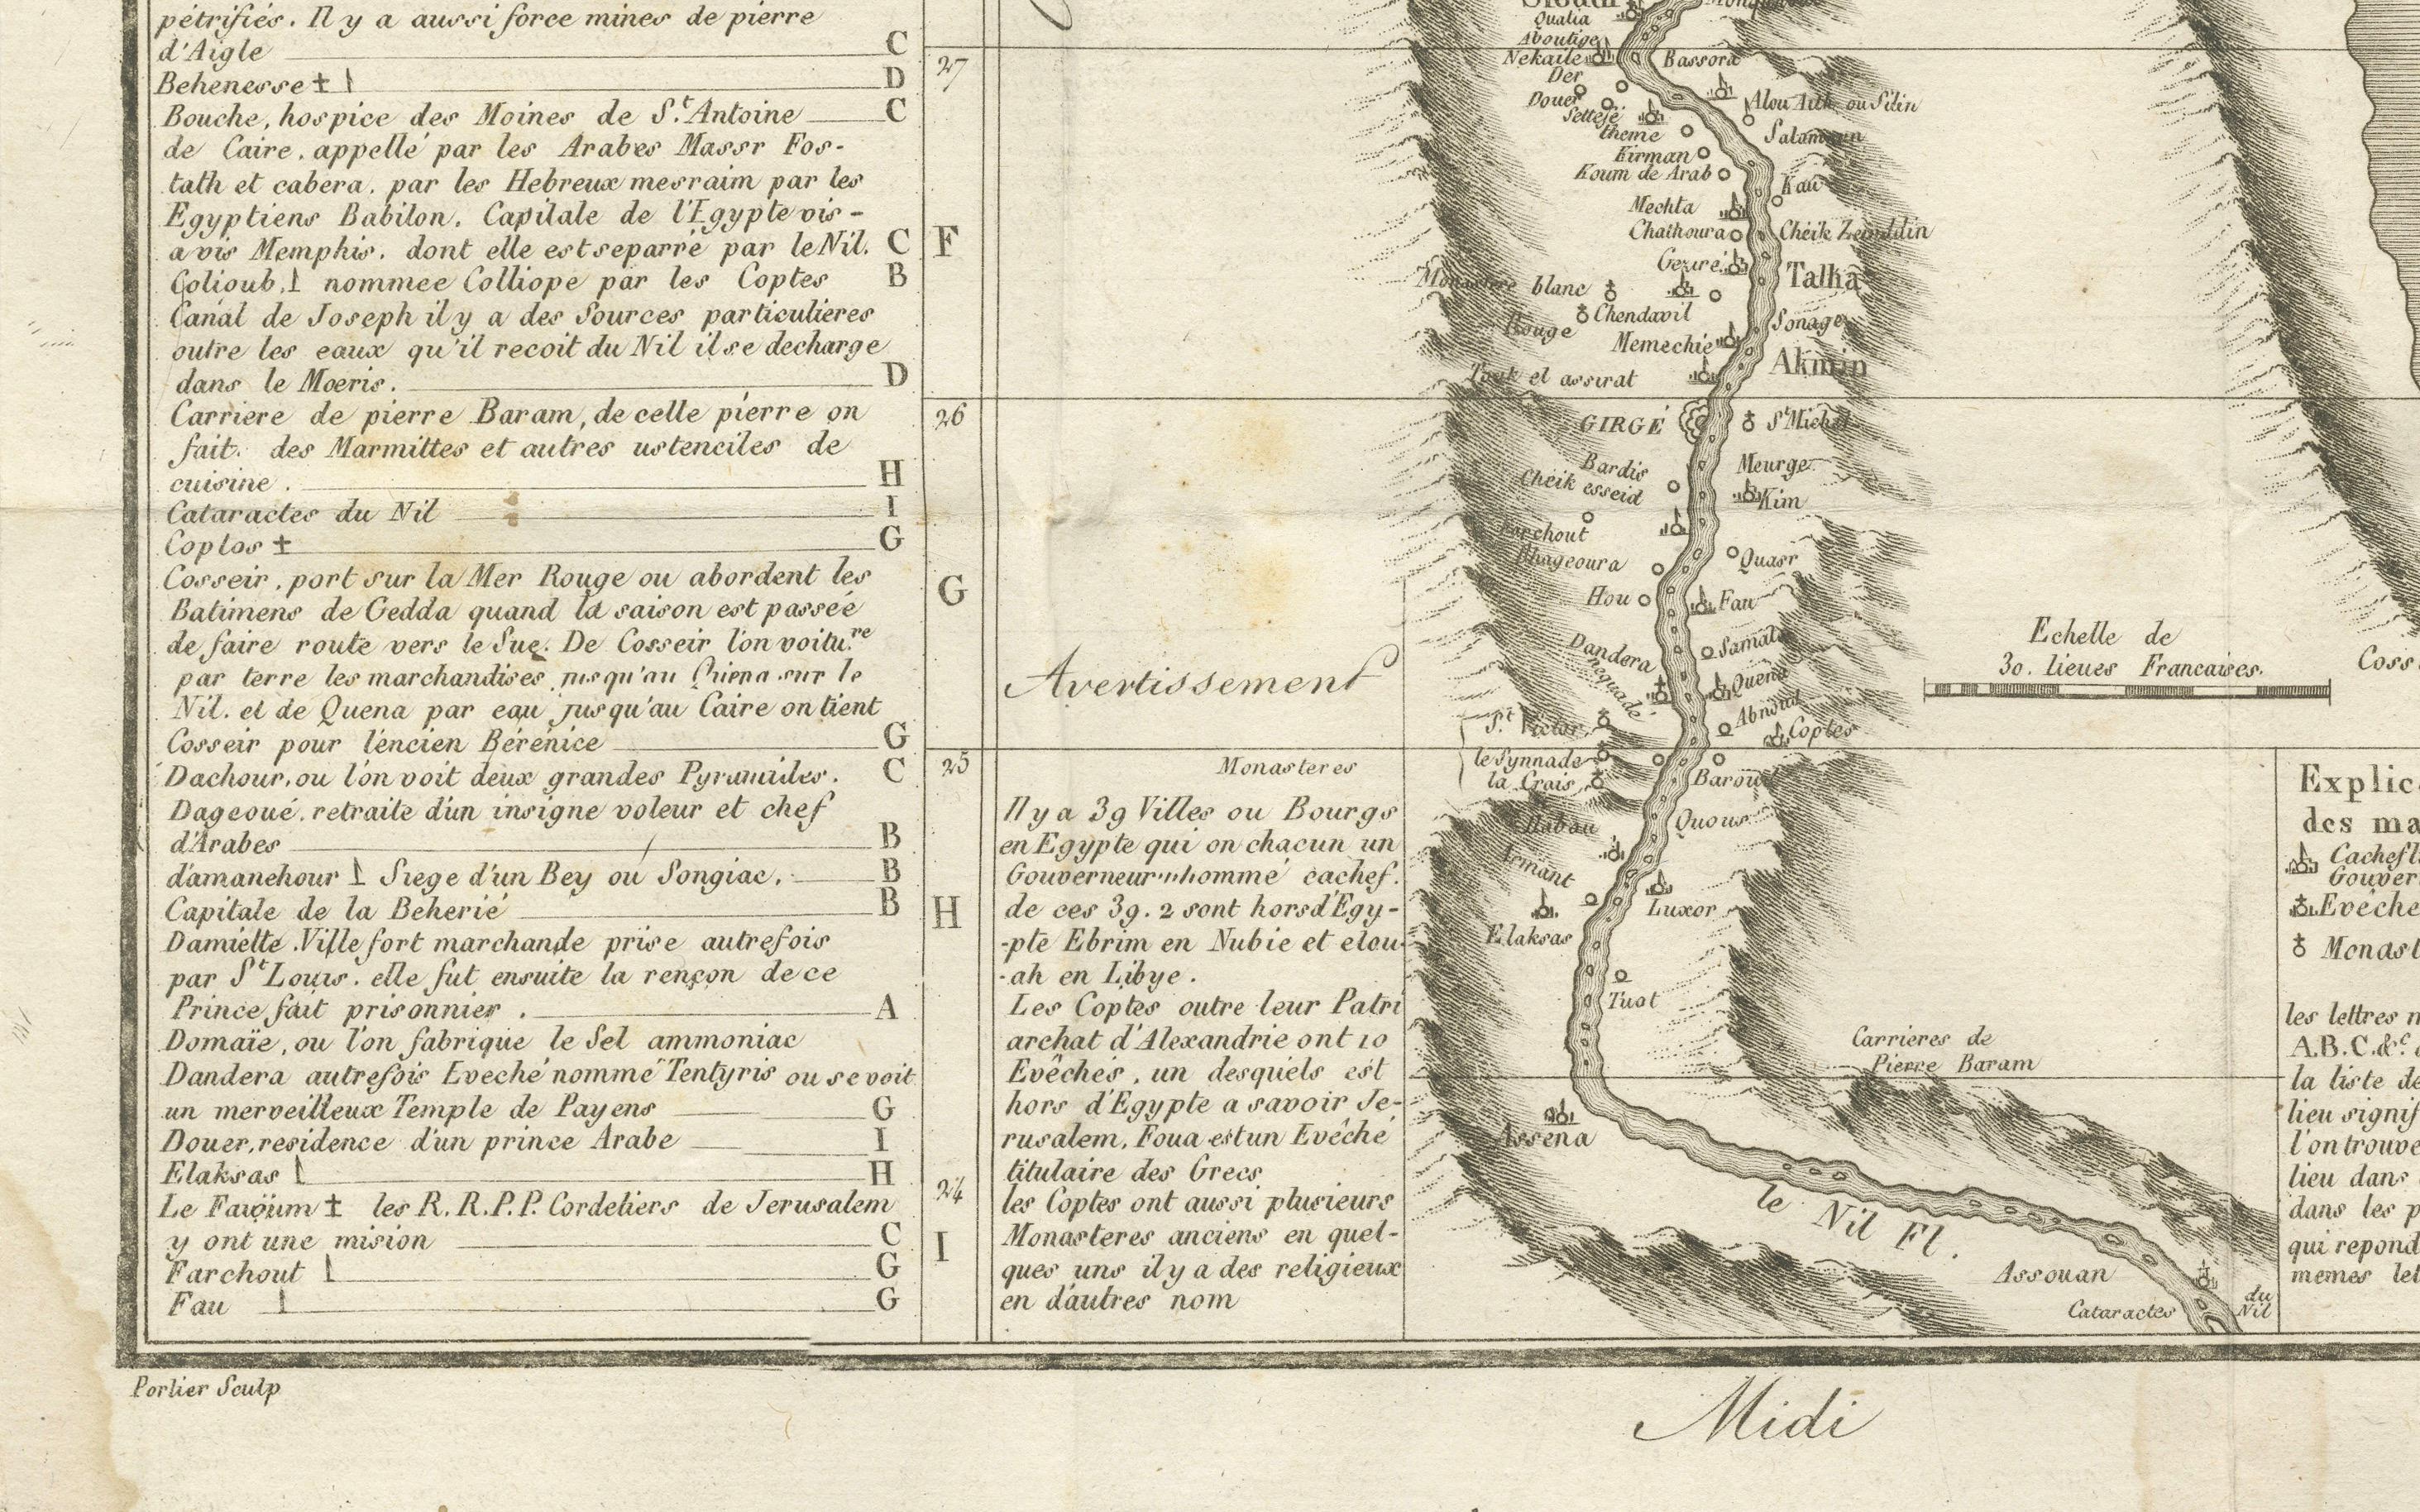 pétrifiés. Il y a aussi force mines de pierre
d'Aigle C
Behenesse D
Bouche, hospice des Moines de S.t Antoine C
de Caire. appellé par les Arabes Massr Fos-
tath et cabera. par les Hebreux mesraim par les
Egyptiens Babilon. Capitale de l'Egypte vis-
a vis Memphis. dont elle est separré par le Nil. C
Colioub, nommee Colliope par les Coptes B
Canal de Joseph il y a des Sources particulieres
outre les eaux qu'il recoit du Nil il se decharge
dans le Mœris. D
Carriere de pierre Baram, de celle pierre on
fait. des Marmittes et autres ustenciles de
cuisine. H
Cataractes du Nil I
Coptos G
Cosseir. port sur la Mer Rouge ou abordent les
Batimens de Gedda quand la saison est passéé
de faire route vers le Sue. De Cosseir l'on voitu.re
par terre les marchandises jusqu'au Quena sur le
Nil. et de Quena par eau jusqu'au Caire on tient
Cosseir pour l'encien Bérénice G
Dachour, ou l'on voit deux grandes Pyramides. C
Dageoué. retraite d'un insigne voleur et chef
d'Arabes B
d'amanehour Siege d'un Bey ou Songiac. B
Capitale de la Beherié B
Damiette. Ville fort marchande prise autrefois
par S.t Louis. elle fut ensuite la rençon de ce
Prince fait prisonnier. A
Domaïe, ou l'on fabrique le Sel ammoniac
Dandera autrefois Eveché nommé Tentyris ou se voit
un merveilleux Temple de Payens G
Douer, residence d'un prince Arabe I
Elaksas H
Le Faïoum les R.R.P.P. Cordeliers de Jerusalem
y ont une mision C
Farchout G
Fau G
27
F
26
G
25
H
24
I
Avertissement
Il y a 39 Villes ou Bourgs
en Egypte qui on chacun un
Gouverneur nhommé cachef.
de ces 39. 2 sont hors d'Egy-
-pte Ebrim en Nubie et elou-
-ah en Libye.
Les Coptes outre leur Patri
archat d'Alexandrie ont 10
Evêchés, un desquels est
hors d'Egypte a savoir Je-
rusalem, Foua est un Evêché
titulaire des Grecs
les Coptes ont aussi plusieurs
Monasteres anciens en quel-
ques uns il y a des religieux
en d'autres nom
Qualia
Aboutige
Nekaile
Bassora
Der
Douer
Alou Aith ou Silin
Settefé
theme
Kirman
Koum de Arab
Kau
Mechta
Chathoura
Cheik Zeinddin
Geziré
Talha
Monastere blanc
Chendavil
Rouge
Sonage
Memechié
Akmin
Tauk el assirat
GIRGÉ
S.t Michel
Bardis
Meurge
Cheik esseid
Kim
Farchout
Bhageoura
Quasr
Hou
Fau
Dandera
Nequadé
Samata
Quena
Abnoud
S.t Victor
Coptes
le Synnade
Monasteres
la Crais
Barout
Quous
Armant
Luxor
Elaksas
Tuot
Carrieres de
Pierre Baram
Assena
le Nil Fl.
Assouan
Cataractes
du
Nil
Echelle de
30. lieues Francaises.
Coss
Explic
des ma
Cachefl
Gouver
Evêche
Monast
les lettres n
A.B.C.&c
la liste de
lieu signif
l'on trouve
lieu dans
dans les p
qui repond
memes let
Porlier Sculp
Midi